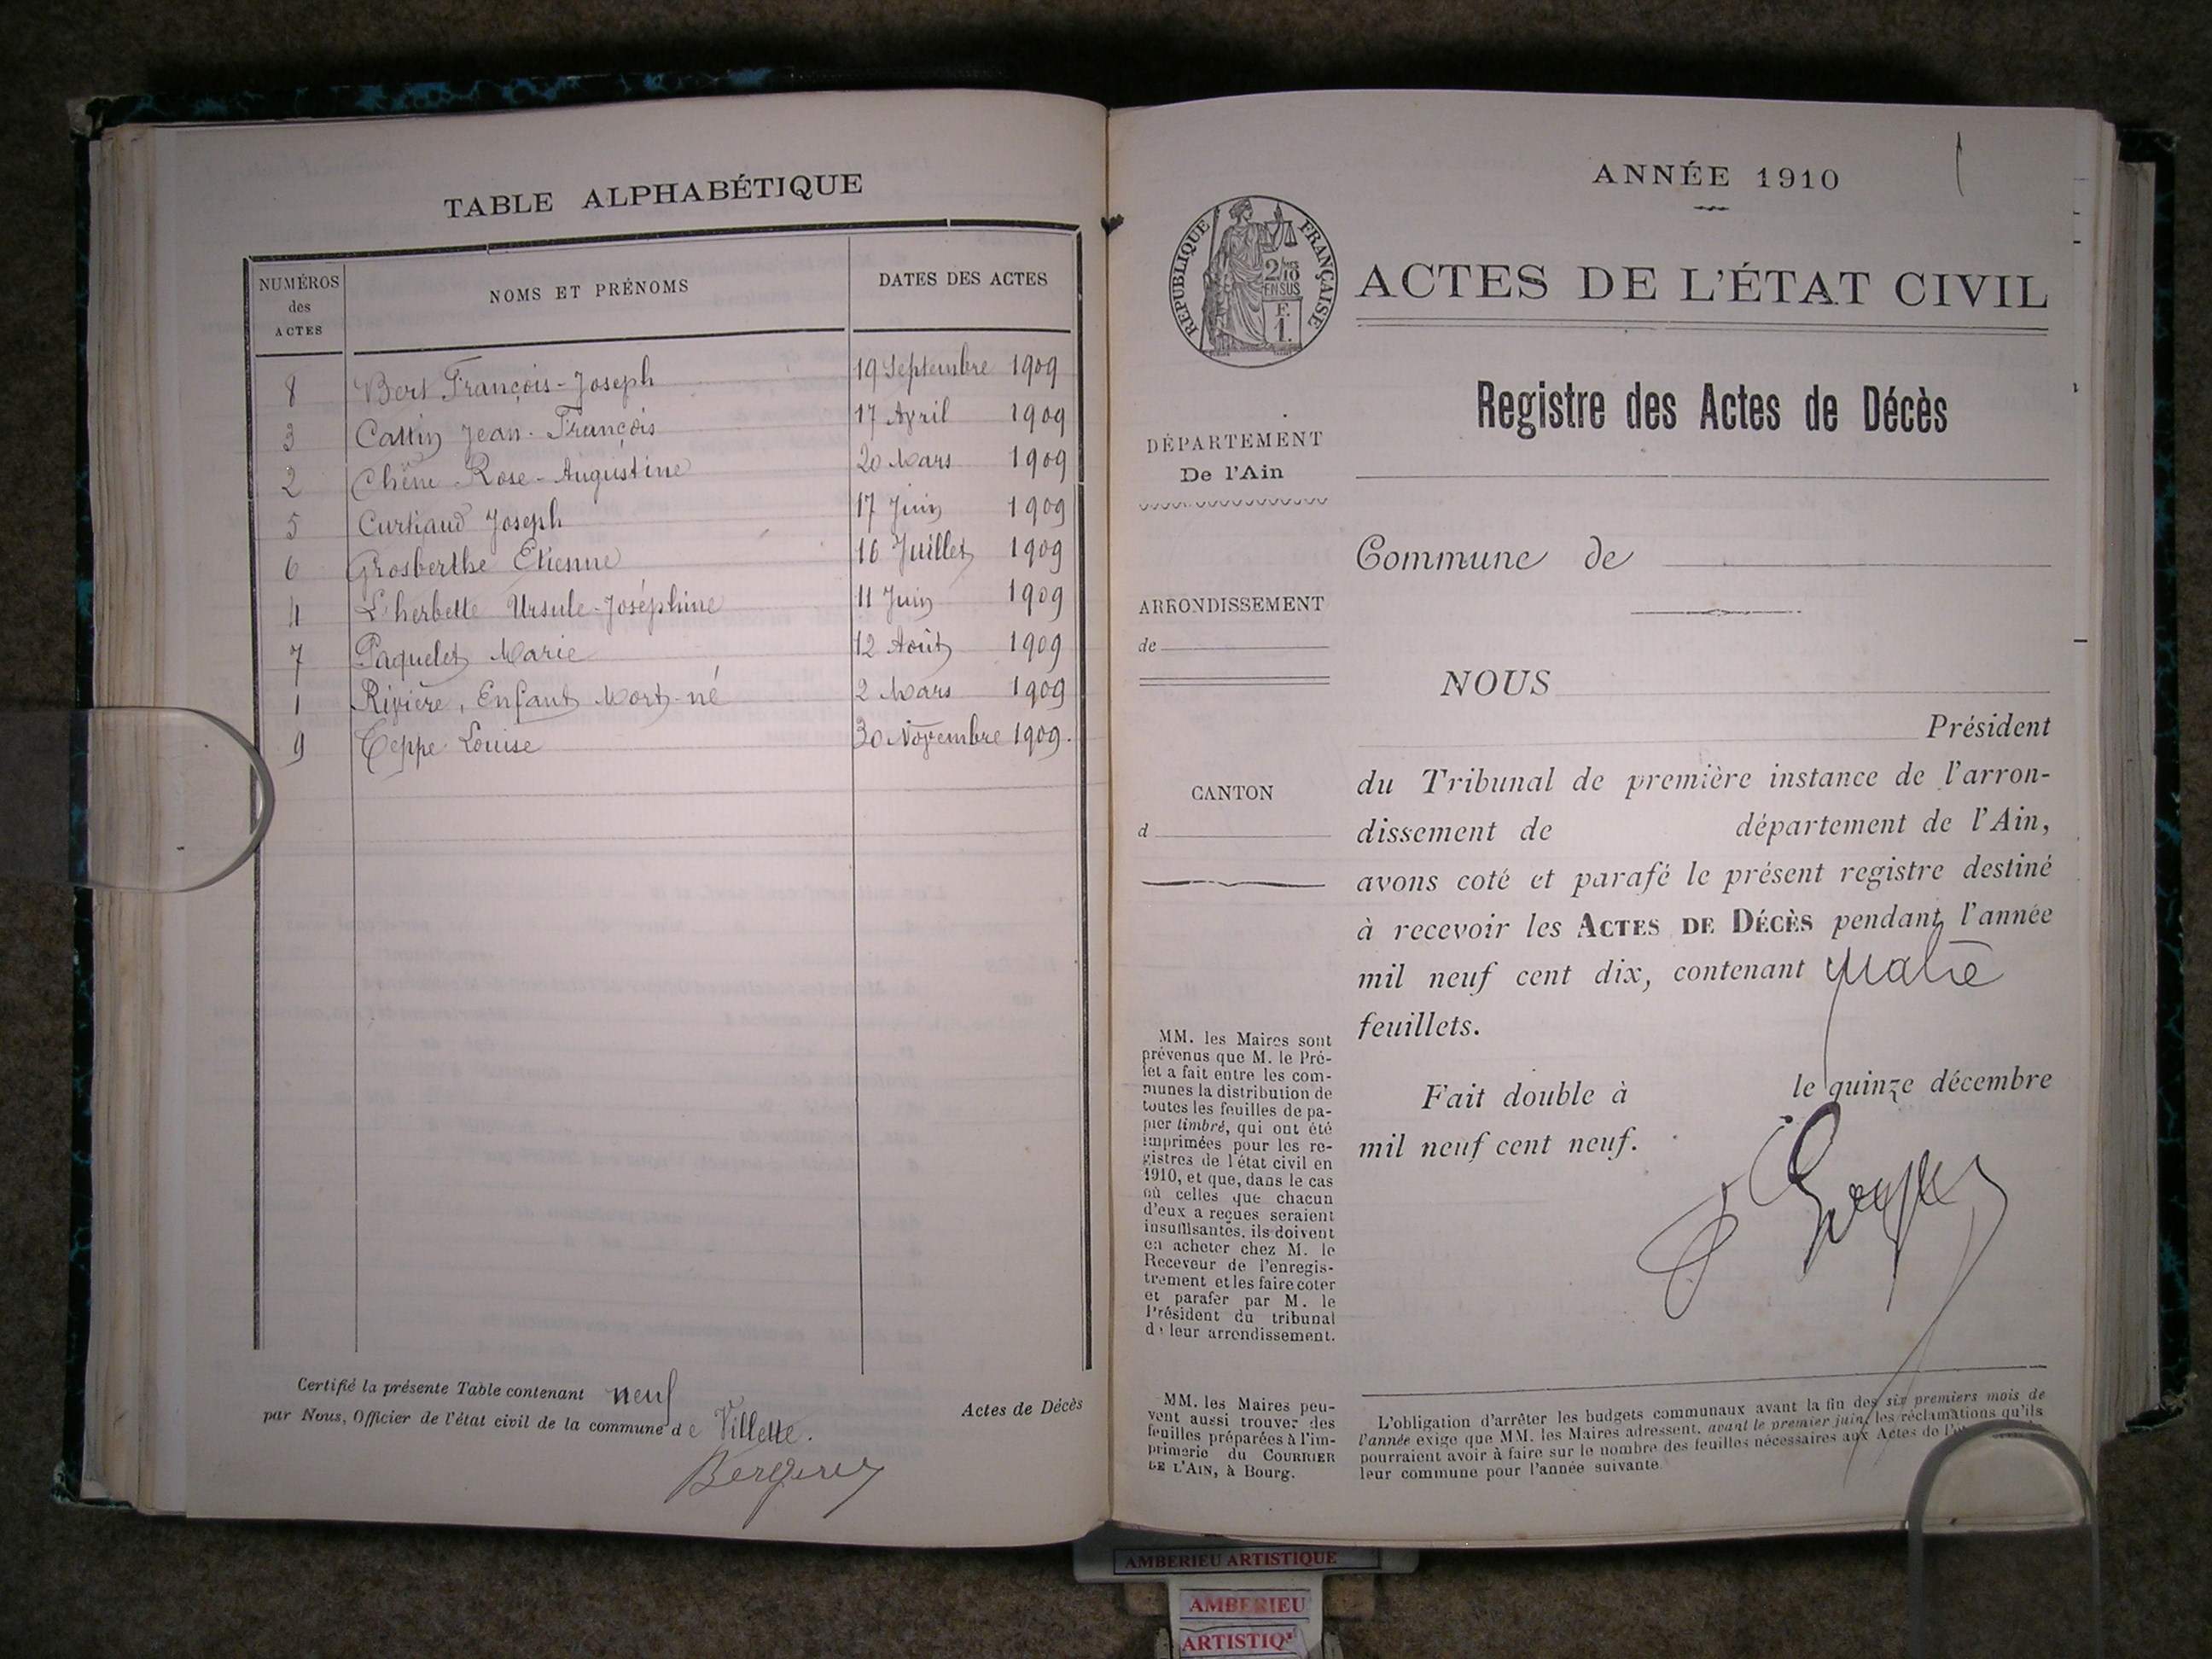 TABLE ALPHABÉTIQUE
NUMÉROS des ACTES
NOMS ET PRÉNOMS
DATES DES ACTES
8 Bert François-Joseph 19 Septembre 1909
3 Cattin Jean-François 17 Avril 1909
2 Chêne Rose-Augustine 20 Mars 1909
5 Curtiaud Joseph 17 Juin 1909
6 Grosberthe Etienne 16 Juillet 1909
4 L'herbette Ursule-Joséphine 11 Juin 1909
7 Paquelet Marie 12 Août 1909
1 Rivière, Enfant Mort-né 2 Mars 1909
9 Teppe Louise 30 Novembre 1909.
Certifié la présente Table contenant neuf
par Nous, Officier de l'état civil de la commune de Villette.
Actes de Décès
ANNÉE 1910
RÉPUBLIQUE FRANÇAISE
2/10 MES
EN SUS
F.
1.
ACTES DE L'ÉTAT CIVIL
Registre des Actes de Décès
DÉPARTEMENT
De l'Ain
Commune de
ARRONDISSEMENT
de
NOUS
Président
CANTON
d
du Tribunal de première instance de l'arron-
dissement de département de l'Ain,
avons coté et parafé le présent registre destiné
à recevoir les ACTES DE DÉCÈS pendant l'année
mil neuf cent dix, contenant quatre
feuillets.
Fait double à le quinze décembre
mil neuf cent neuf.
MM. les Maires sont
prévenus que M. le Pré-
fet a fait entre les com-
munes la distribution de
toutes les feuilles de pa-
pier timbré, qui ont été
imprimées pour les re-
gistres de l'état civil en
1910, et que, dans le cas
où celles que chacun
d'eux a reçues seraient
insuffisantes, ils doivent
en acheter chez M. le
Receveur de l'enregis-
trement et les faire coter
et parafer par M. le
Président du tribunal
de leur arrondissement.
MM. les Maires peu-
vent aussi trouver des
feuilles préparées à l'im-
primerie du COURRIER
DE L'AIN, à Bourg.
L'obligation d'arrêter les budgets communaux avant la fin des six premiers mois de
l'année exige que MM. les Maires adressent, avant le premier juin, les réclamations qu'ils
pourraient avoir à faire sur le nombre des feuilles nécessaires aux Actes de
leur commune pour l'année suivante.
AMBERIEU ARTISTIQUE
AMBERIEU
ARTISTIQ